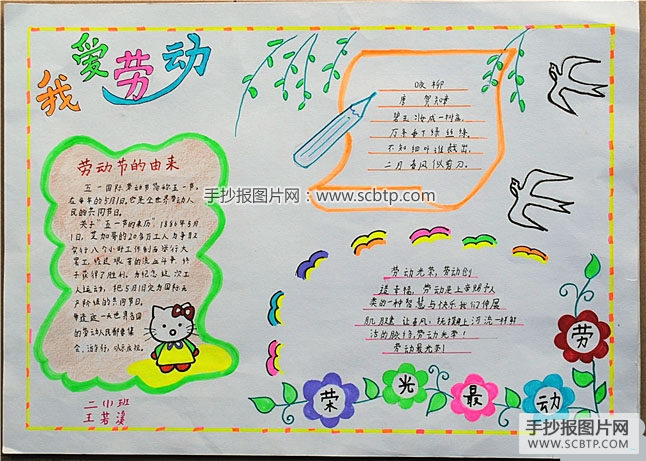 我爱劳动
劳动节的由来
五一国际劳动节简称五一节,
在每年的5月1日,它是全世界劳动人
民的共同节日。
关于"五一节的来历":1886年5月
1日,芝加哥的20多万工人为争取
实行八个小时工作制而举行大
罢工,
终于获得了胜利。为纪念这次工
人运动,把5月1日定为国际无
产阶级的共同节日。
的劳动人民都要集
会,游行,以示庆祝。
二(1)班
咏柳
唐 贺知章
碧玉妆成一树高,
万条垂下绿丝绦。
不知细叶谁裁出,
二月春风似剪刀。
手抄报图片网:www.scbtp.com
劳动光荣,劳动创
造幸福,劳动是上帝赐予人
类的一种智慧与快乐
劳动光荣!
劳动最光荣!
荣光最动劳
手抄报图片网
WWW.SCBTP.COM